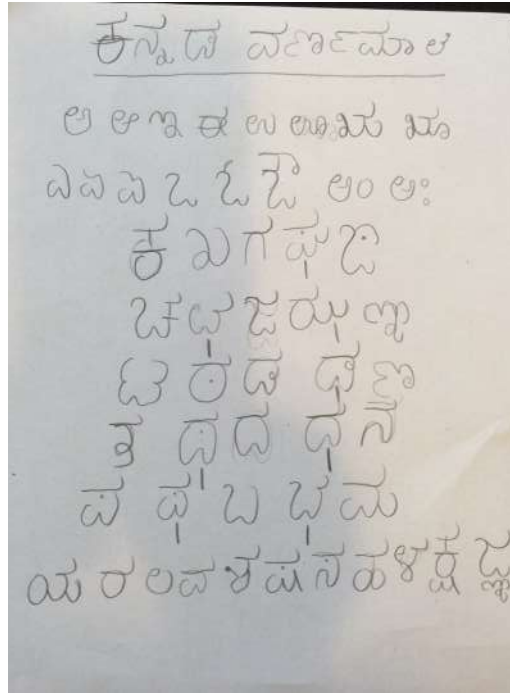 ಕನ್ನಡ ವರ್ಣಮಾಲೆ
ಅ ಆ ಇ ಈ ಉ ಊ ಋ ೠ
ಎ ಏ ಐ ಒ ಓ ಔ ಅಂ ಅಃ
ಕ ಖ ಗ ಘ ಙ
ಚ ಛ ಜ ಝ ಞ
ಟ ಠ ಡ ಢ ಣ
ತ ಥ ದ ಧ ನ
ಪ ಫ ಬ ಭ ಮ
ಯ ರ ಲ ವ ಶ ಷ ಸ ಹ ಳ ಕ್ಷ ಜ್ಞ